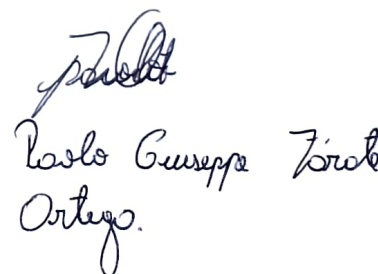 Paolo Giuseppe Zárate
Ortega.